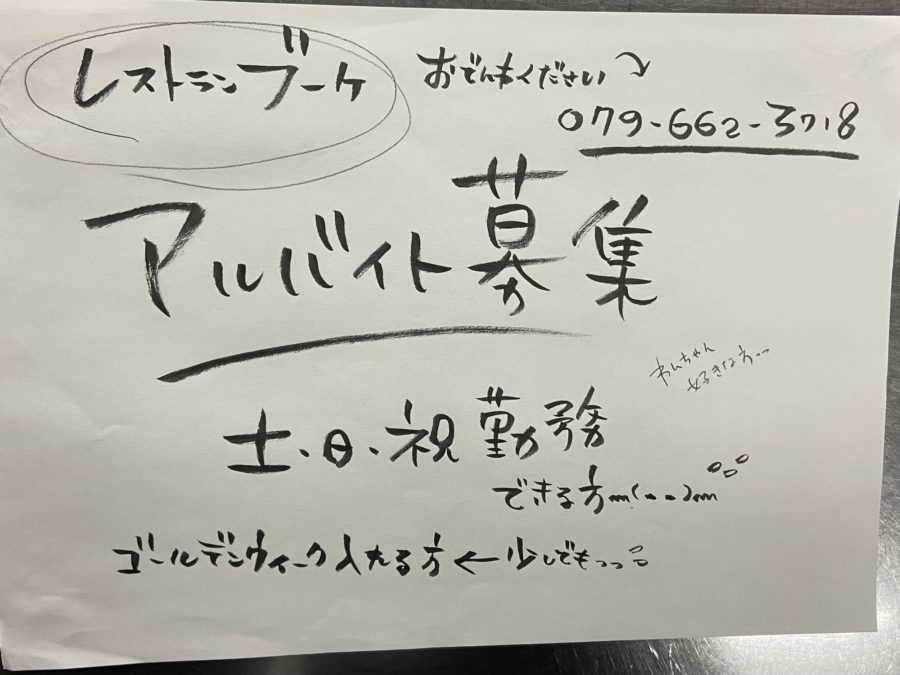 レストランブーケ
おでんわください
079-662-3718
アルバイト募集
わんちゃん
好きな方…
土・日・祝勤務
できる方m(..)m
ゴールデンウィーク入れる方←少しでもっっ